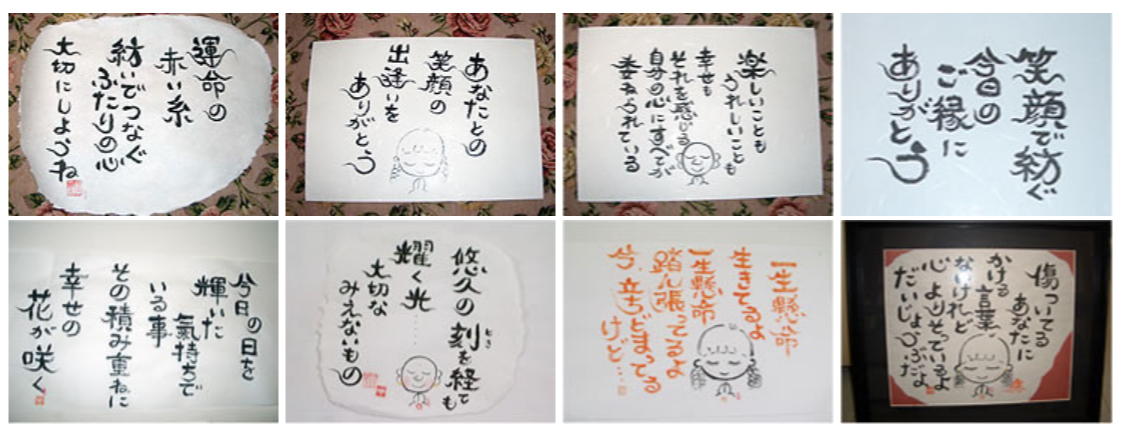 運命の
赤い糸
紡いでつなぐ
ふたりの心
大切にしようね
あなたとの
笑顔の
出逢いを
ありがとう
楽しいことも
うれしいことも
幸せも
それを感じる
自分の心にすべてが
委ねられている
笑顔で紡ぐ
今日の
ご縁に
ありがとう
今日の日を
輝いた
氣持ちで
いる事
その積み重ねに
幸せの
花が咲く
悠久の刻を経ても
とき
耀く光……
大切な
みえないもの
一生懸命
生きてるよ
一生懸命
踏ん張ってるよ
今、立ちどまってる
けど…
傷ついてる
あなたに
かける言葉
なけれど
心よりそっているよ
だいじょうぶだよ